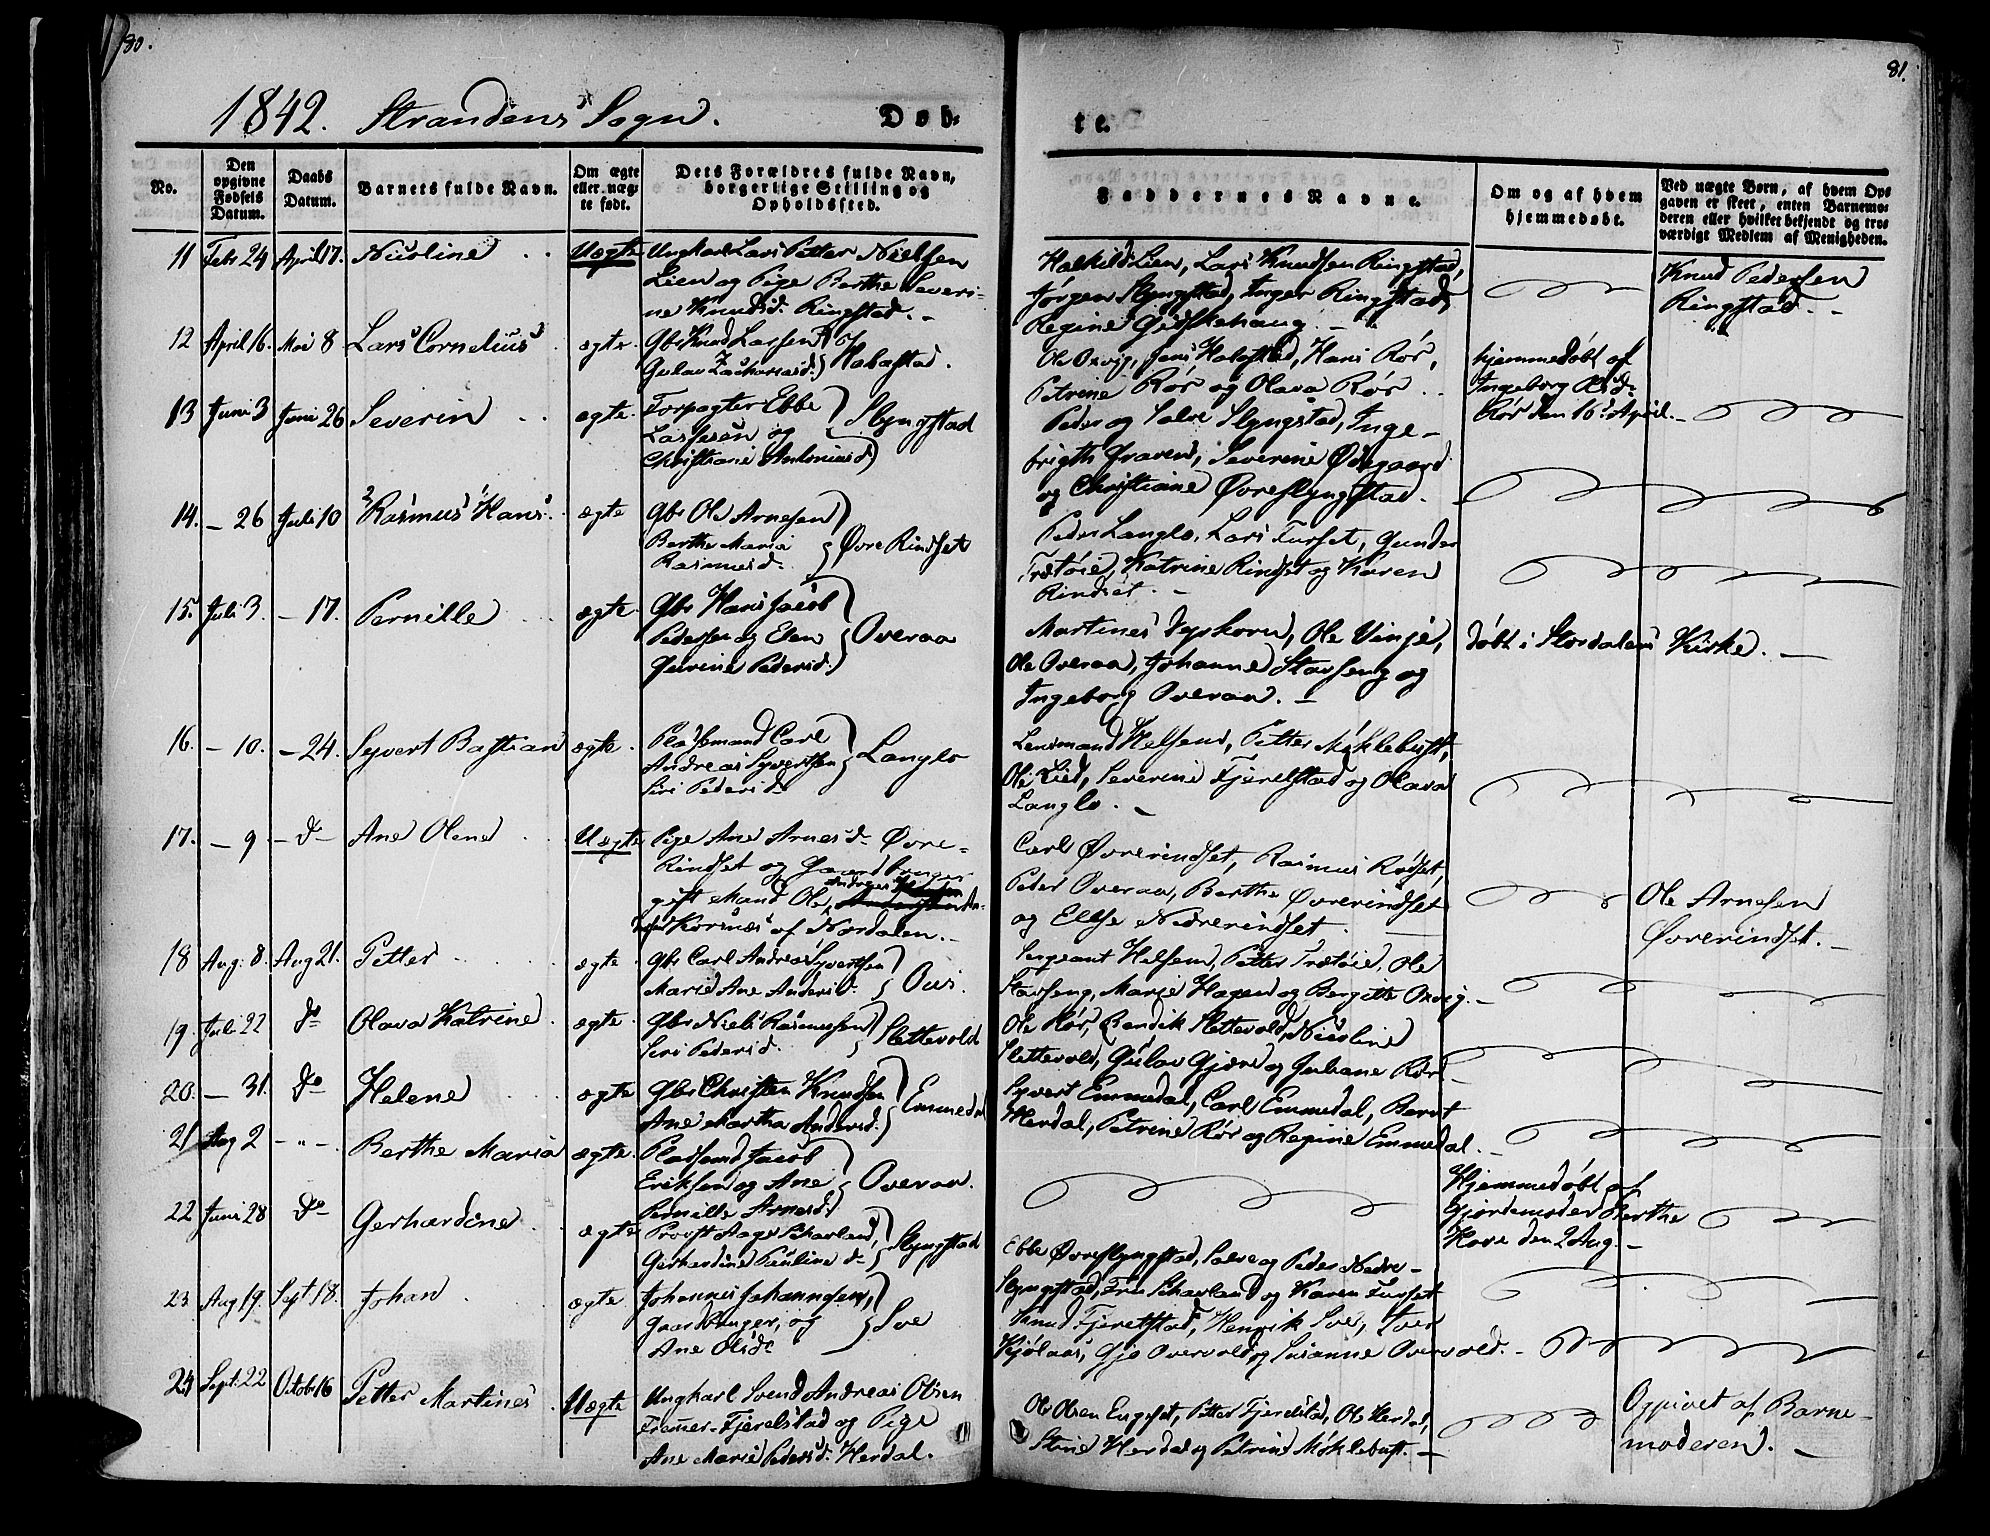 80.
1842. Strandens Sogn.
Døb-
No.
Den opgivne Fødsels Datum.
Daabs Datum.
Barnets fulde Navn.
Om ægte eller uæg- te født.
Dets Forældres fulde Navn, borgerlige Stilling og Opholdssted.
11 Febr 24 April 17. Nicoline Uægte Ungkarl Lars Petter Nielsen
Lien og Pige Berthe Severi-
ne Knudsd. Ringstad.
12 April 16. Mai 8 Lars Cornelius ægte Gbr Knud Larsen
Gulov Zachariasd. Habostad.
13 Juni 3 Juni 26 Severin ægte Forpagter Ebbe
Lassesen og Slyngstad
Christiane Antoniusd.
14. - 26 Juli 10 Rasmus Hans ægte Gbr Ole Arnesen
Berthe Maria Øvre Rindset
Rasmusd.
15. Juli 3. - 17. Pernille ægte Gbr Hans Jacob
Pedersen og Elen Overaa
Gurine Pedersd.
16. - 10. - 24. Syvert Bastian ægte Pladsmand Carl
Andreas Syvertsen Langlo
Siri Pedersd.
17. - 9 - d - Ane Olene Uægte Pige Ane Arnesd. Øvre-
Rindset og Gaardbruger
gift Mand Ole Andreas
Korsnæs af Nordalen.
18 Aug: 8. Aug 21. Petter ægte Gbr Carl Andreas Syvertsen
Marie Ane Andersd. Ous.
19. Juli 22 do Olava Katrine ægte Gbr Niels Rasmussen
Siri Pedersd. Slettevold
20. - 31. do Helene ægte Gbr Christen Knudsen
Ane Martha Andersd. Emmedal
21 Aug 2 - " - Berthe Maria ægte Pladsmd Jacob
Eriksen og Ane Overaa.
Pernille Arnesd.
22 Juni 28 do Gerhardine ægte Provst Aage Schavland,
Gerhardine Pauline d Slyngstad
23 Aug 19. Sept 18. Johan ægte Johannes Johannesen,
Gaardbruger, og Sve
Ane Olsd.
24 Sept: 22 Octob 16 Petter Martines Uægte Ungkarl Svend Andreas Olsen
Fremer-Fjerelstad og Pige
Ane Marie Pedersd. Herdal.
81.
te.
Faddernes Navne.
Om og af hvem hjemmedøbt.
Ved uægte Børn, af hvem Op- gaven er skeet, enten Barnemo- deren eller hvilket bekjendt og tro- værdigt Medlem af Menigheden.
Halkild Lien, Lars Knudsen Ringstad,
Jørgen Slyngstad, Inger Ringstad,
Regine Gidskehaug.
Knud Pedersen
Ringstad.
Ole Oxvig, Jens Habostad, Hans Rør,
Petrine Rør og Olava Rør
hjemmedøbt af
Ingeborg Olsd.
Rør den 16de April.
Peder og Salve Slyngstad, Inge-
brigth Gravend, Severine Ødegaard
og Christiane Øvreslyngstad.
Peder Langlo, Lars Furset, Gunder
Trætøie, Katrine Rindset og Karen
Rindset.
Martines Dyskorn, Ole Vinje,
Ole Overaa, Johanne Stavseng og
Ingeborg Overaa.
døbt i Stordalens Kirke.
Lensmand Helsem, Petter Møklebust,
Ole Lied, Severine Fjerelstad og Olava
Langlo.
Carl Øvrerindset, Rasmus Rødset,
Peder Overaa, Berthe Øvrerindset
og Ellse Nedrerindset.
Ole Arnesen
Øvrerindset.
Sergeant Helsem, Petter Trætøie, Ole
Stavseng, Marie Hagen og Bergitte Oxvig.
Ole Rør, Bendik Slettevold, Nicoline
Slettevold, Gulov Gjære og Juliane Rør
Syvert Emmedal, Carl Emmedal, Bernt
Herdal, Petrine Rør og Regine Emmedal.
Hjemmedøbt af
Gjordemoder Berthe
Hove den 2 Aug.
Ebbe Øvreslyngstad, Salve og Peder Nedre-
Slyngstad, Fru Schavland og Karen Furset
Knud Fjerelstad, Henrik Sve, Iver
Kjølaas, Gjo Overvold og Susanne Overvold.
Ole Olsen Engeset, Petter Fjerelstad, Ole Herdal,
Stine Herdal og Petrine Møklebust.
Opgivet af Barne-
moderen.